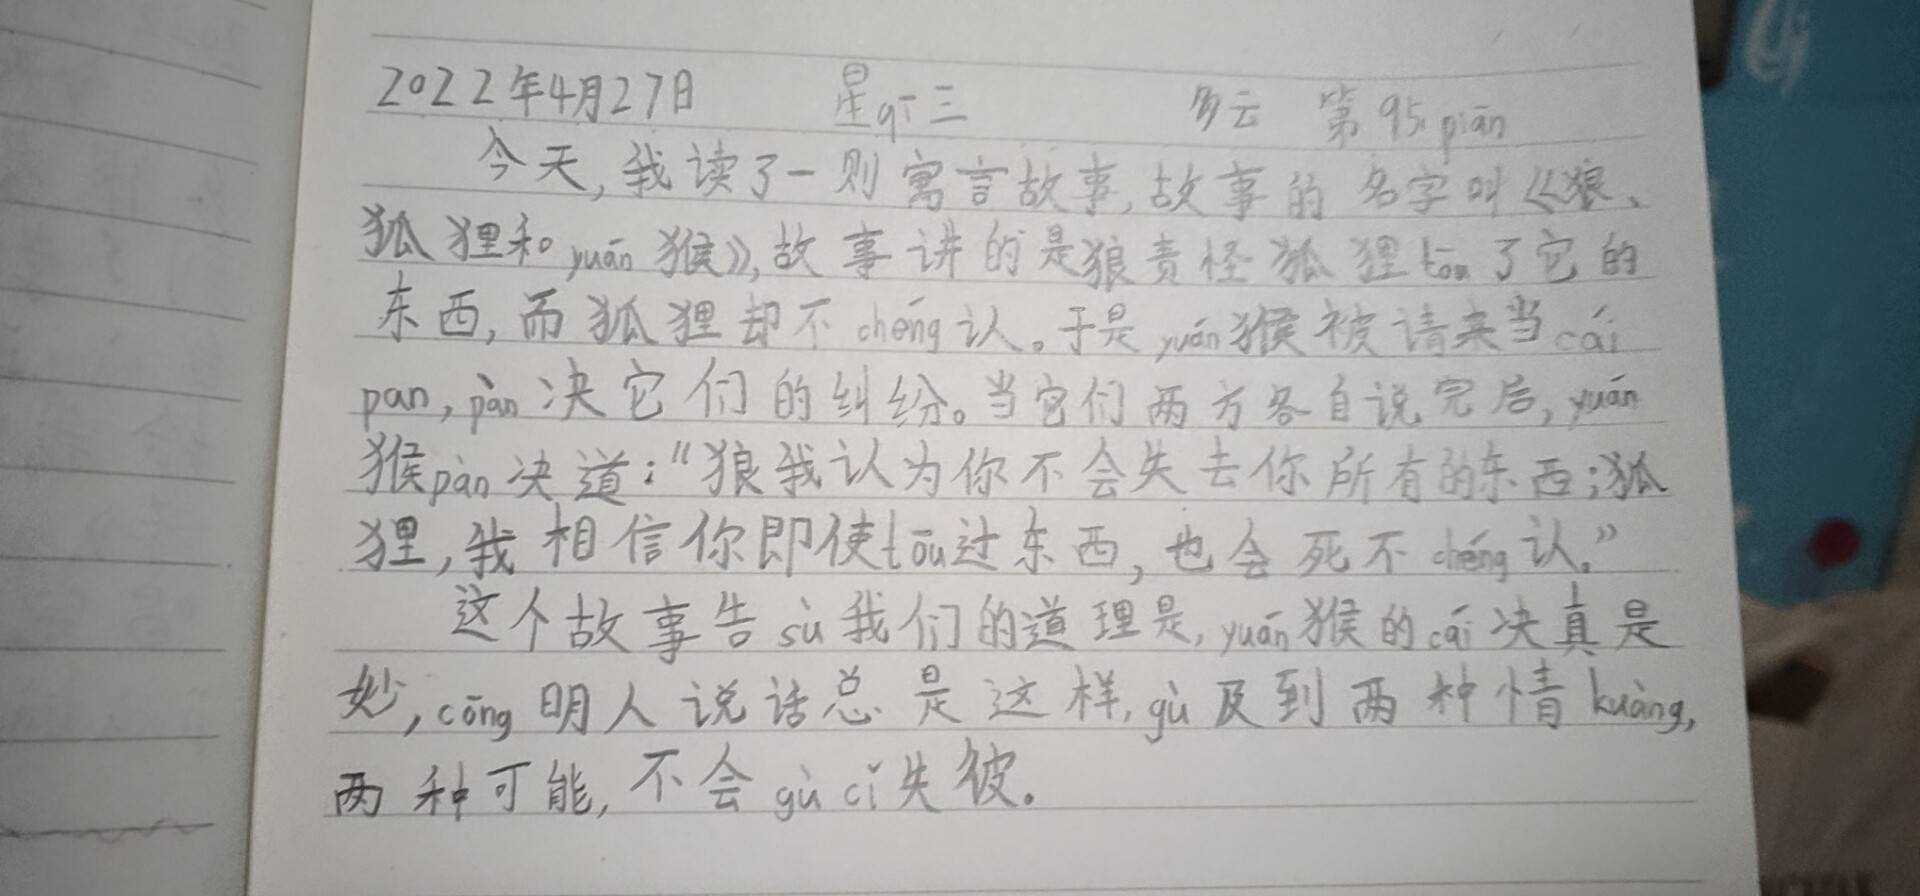 2022年4月27日 星qī三 多云 第95piān
今天,我读了一则寓言故事,故事的名字叫《狼、
狐狸和yuán猴》,故事讲的是狼责怪狐狸tōu了它的
东西,而狐狸却不chéng认。于是yuán猴被请来当cái
pan,pàn决它们的纠纷。当它们两方各自说完后,yuán
猴pàn决道:“狼我认为你不会失去你所有的东西;狐
狸,我相信你即使tōu过东西,也会死不chéng认。”
这个故事告sù我们的道理是,yuán猴的cái决真是
妙,cōng明人说话总是这样,gù及到两种情kuàng,
两种可能,不会gù cǐ失彼。